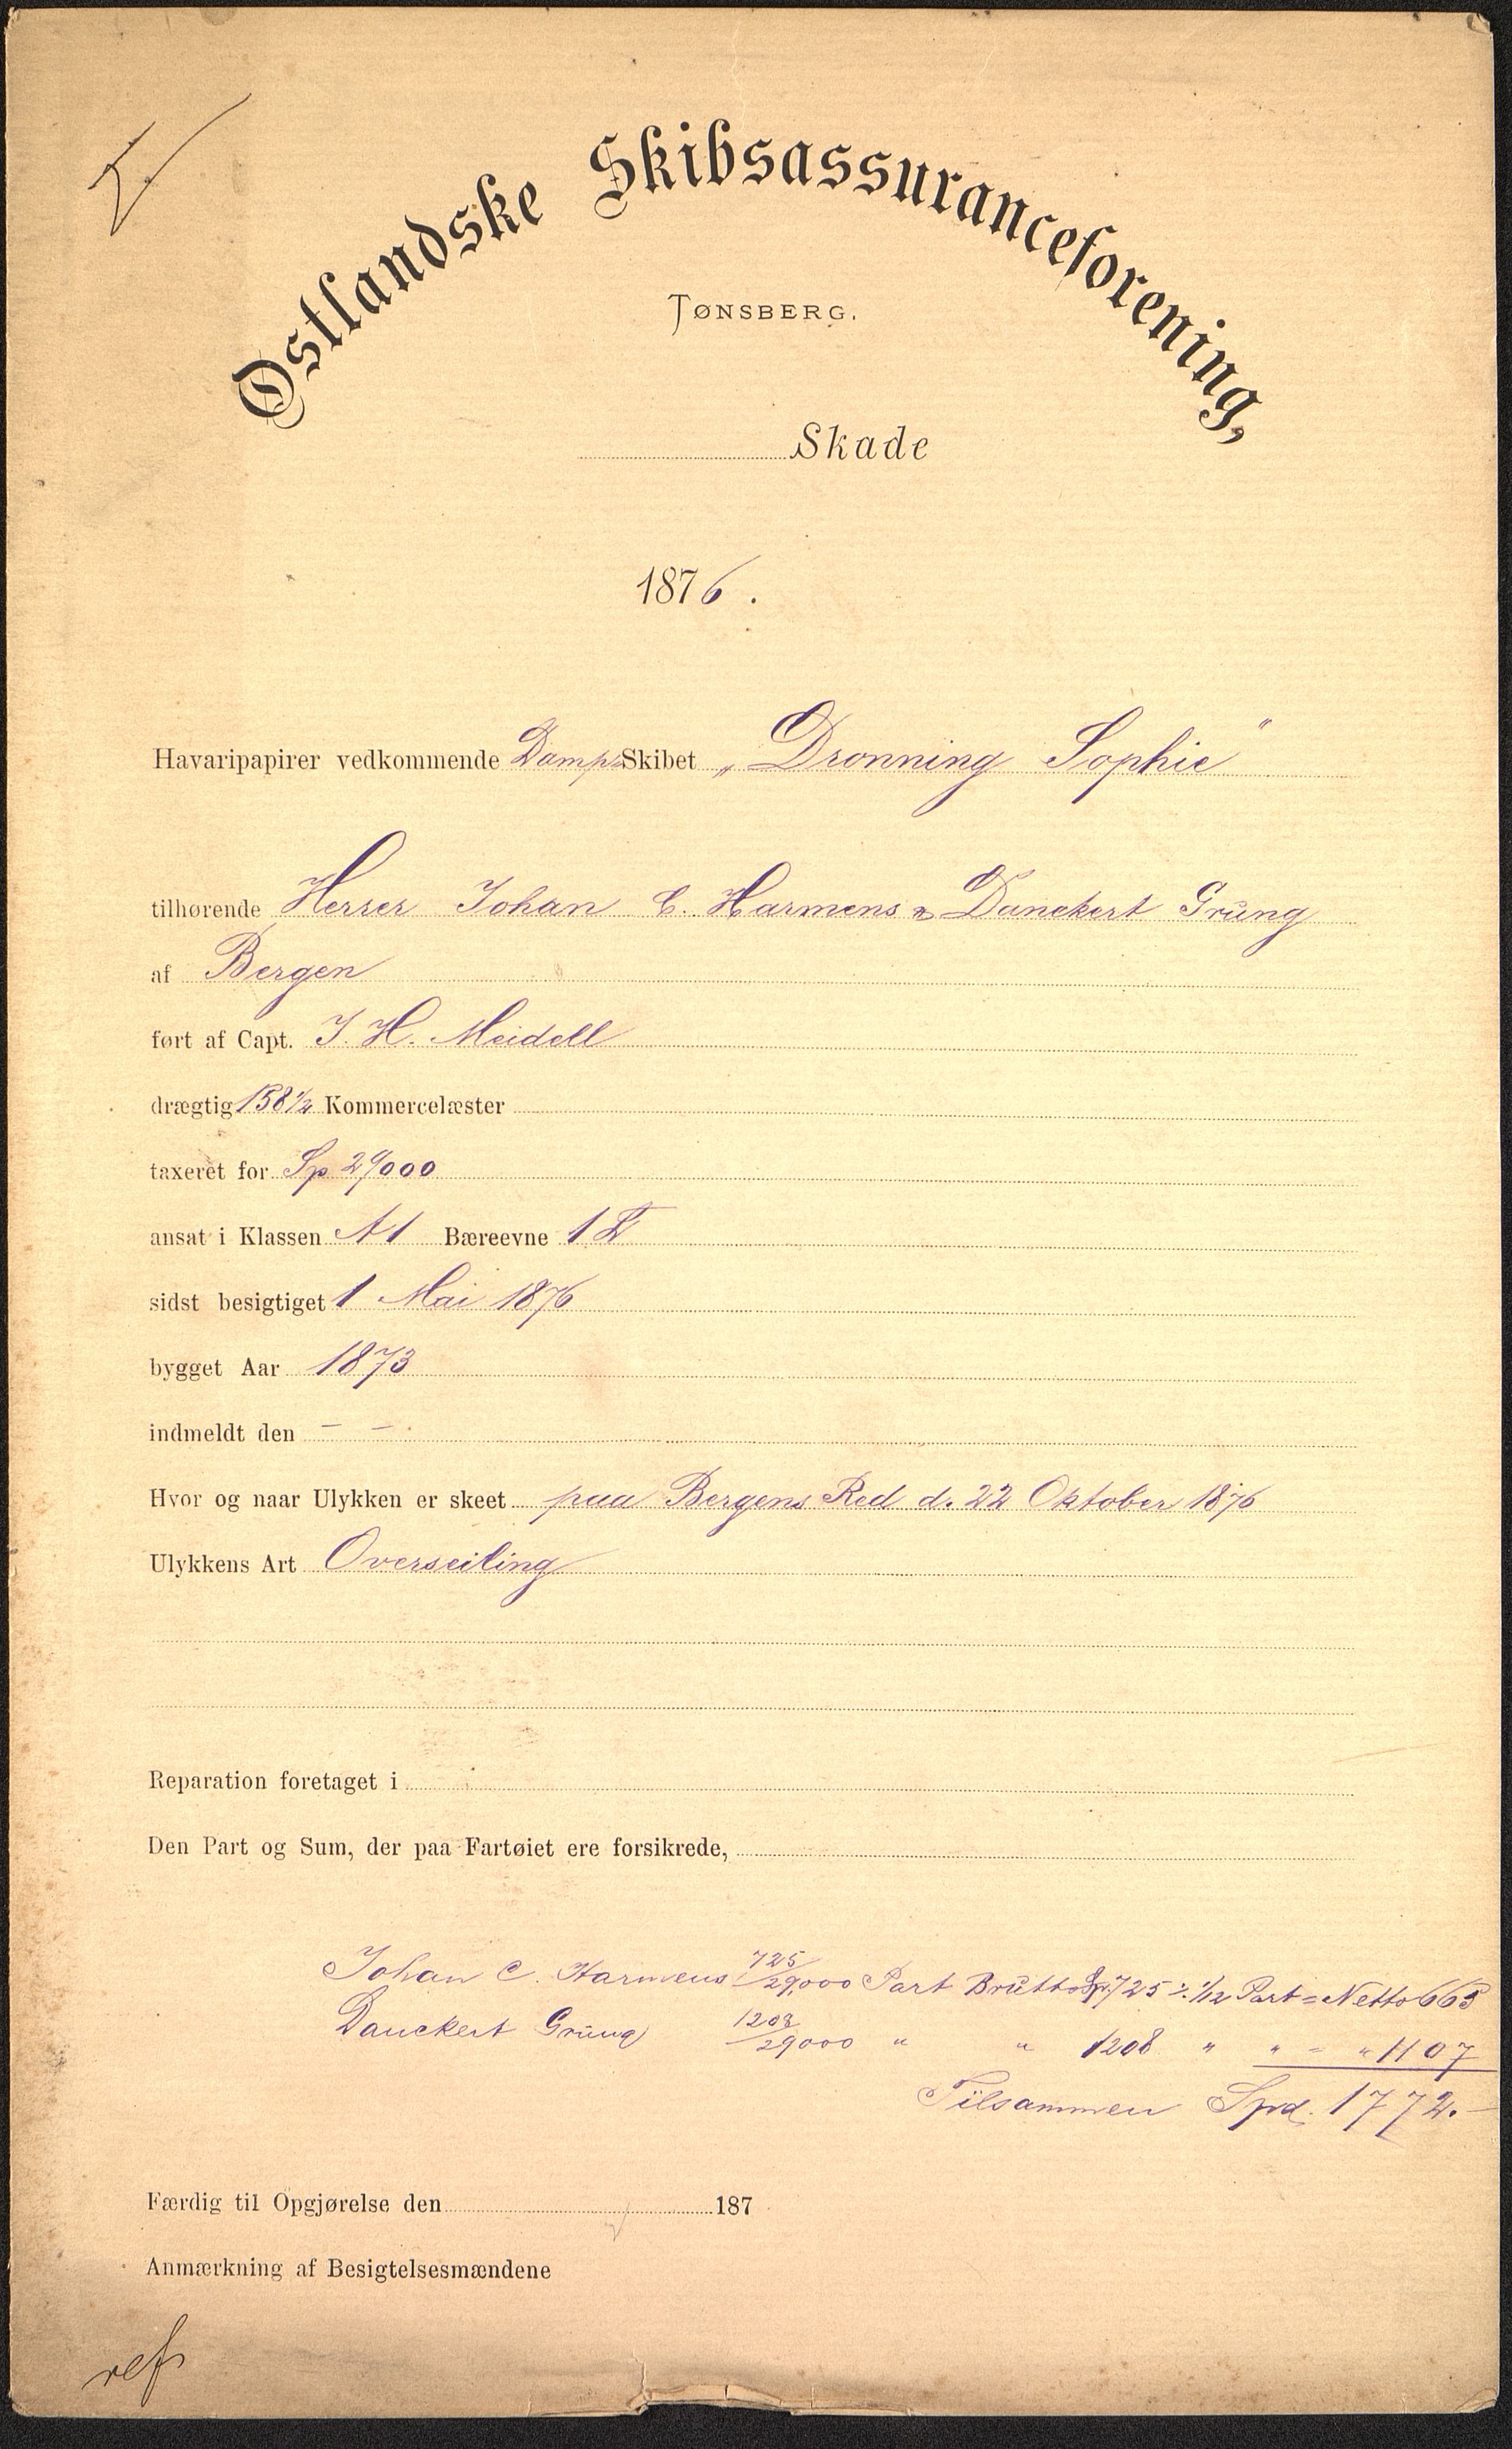 Østlandske Skibsassuranceforening,
TØNSBERG.
Skade
1876.
Havaripapirer vedkommende Damp Skibet „Dronning Sophie"
tilhørende Herrer Johan C. Harmens & Danckert Grung
af Bergen
ført af Capt. J. H. Meidell
drægtig 158½ Kommercelæster
taxeret for Sp 29000
ansat i Klassen A1 Bæreevne 1
sidst besigtiget 1 Mai 1876
bygget Aar 1873
indmeldt den – –
Hvor og naar Ulykken er skeet paa Bergens Red d. 22 Oktober 1876
Ulykkens Art Overseiling
Reparation foretaget i
Den Part og Sum, der paa Fartøiet ere forsikrede,
Johan C. Harmens 725/29,000 Part Brutto Sp. 725 ÷ 1/12 Part = Netto 665
Danckert Grung 1208/29000 " " 1208 " " = " 1107
Tilsammen Spd. 1772.–
Færdig til Opgjørelse den 187
Anmærkning af Besigtelsesmændene
ref